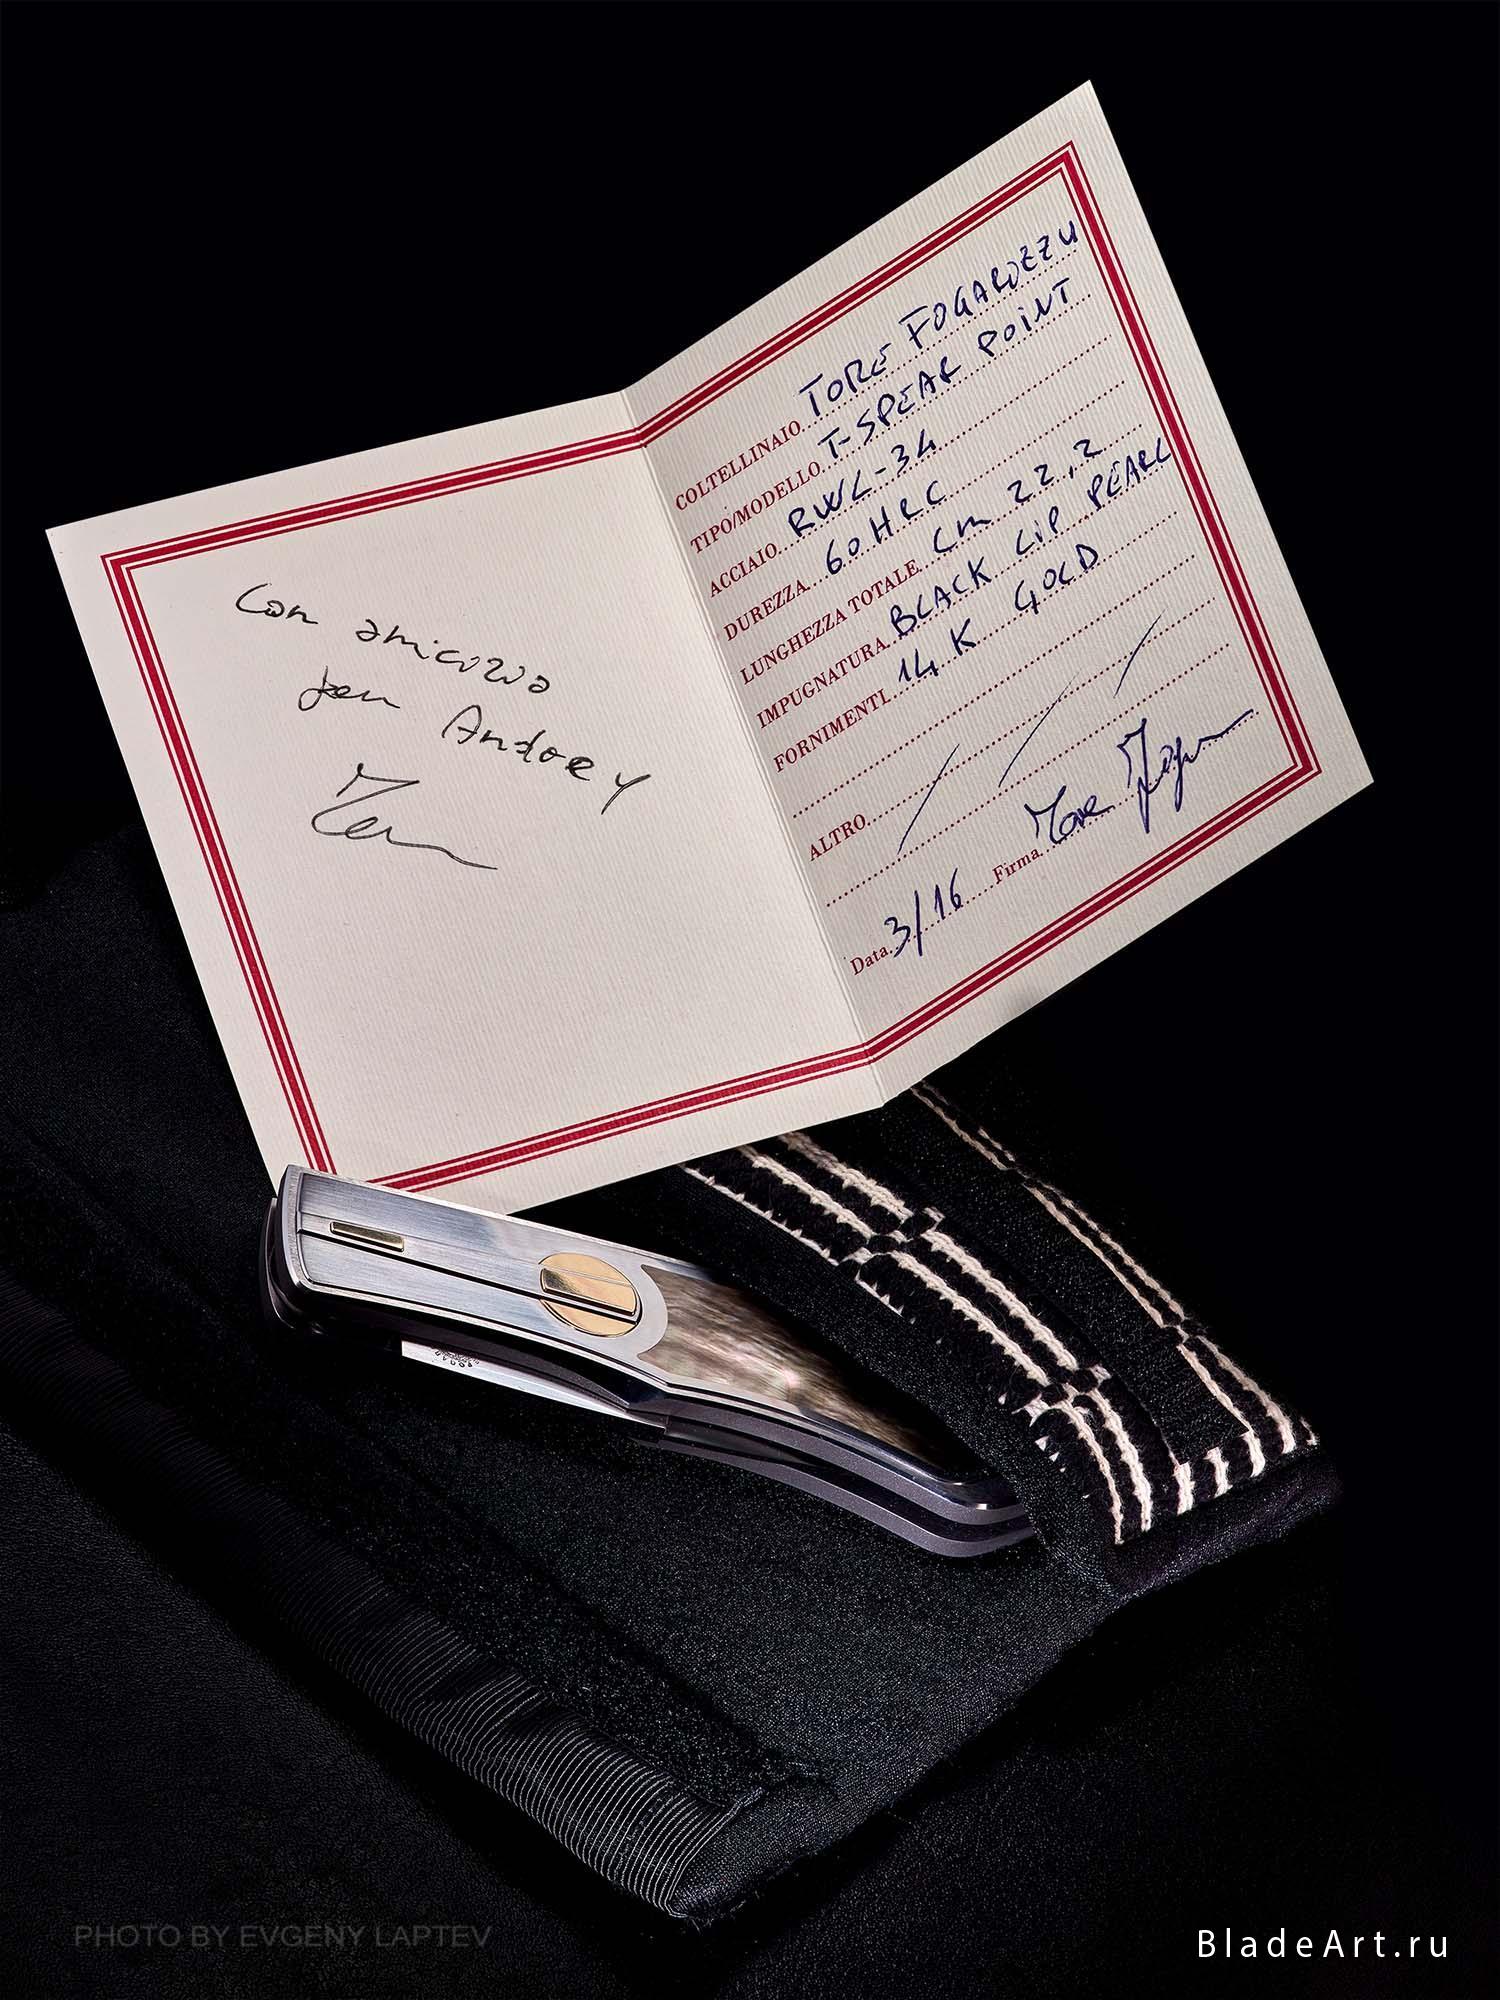 Con amicizia
per Andrey
COLTELLINAIO TORE FOGARIZZU
TIPO/MODELLO T-SPEAR POINT
ACCIAIO RWL-34
DUREZZA 60 HRC
LUNGHEZZA TOTALE cm 22,2
IMPUGNATURA BLACK LIP PEARL
FORNIMENTI 14 K GOLD
ALTRO / / /
Data 3/16 Firma Tore
PHOTO BY EVGENY LAPTEV
BladeArt.ru